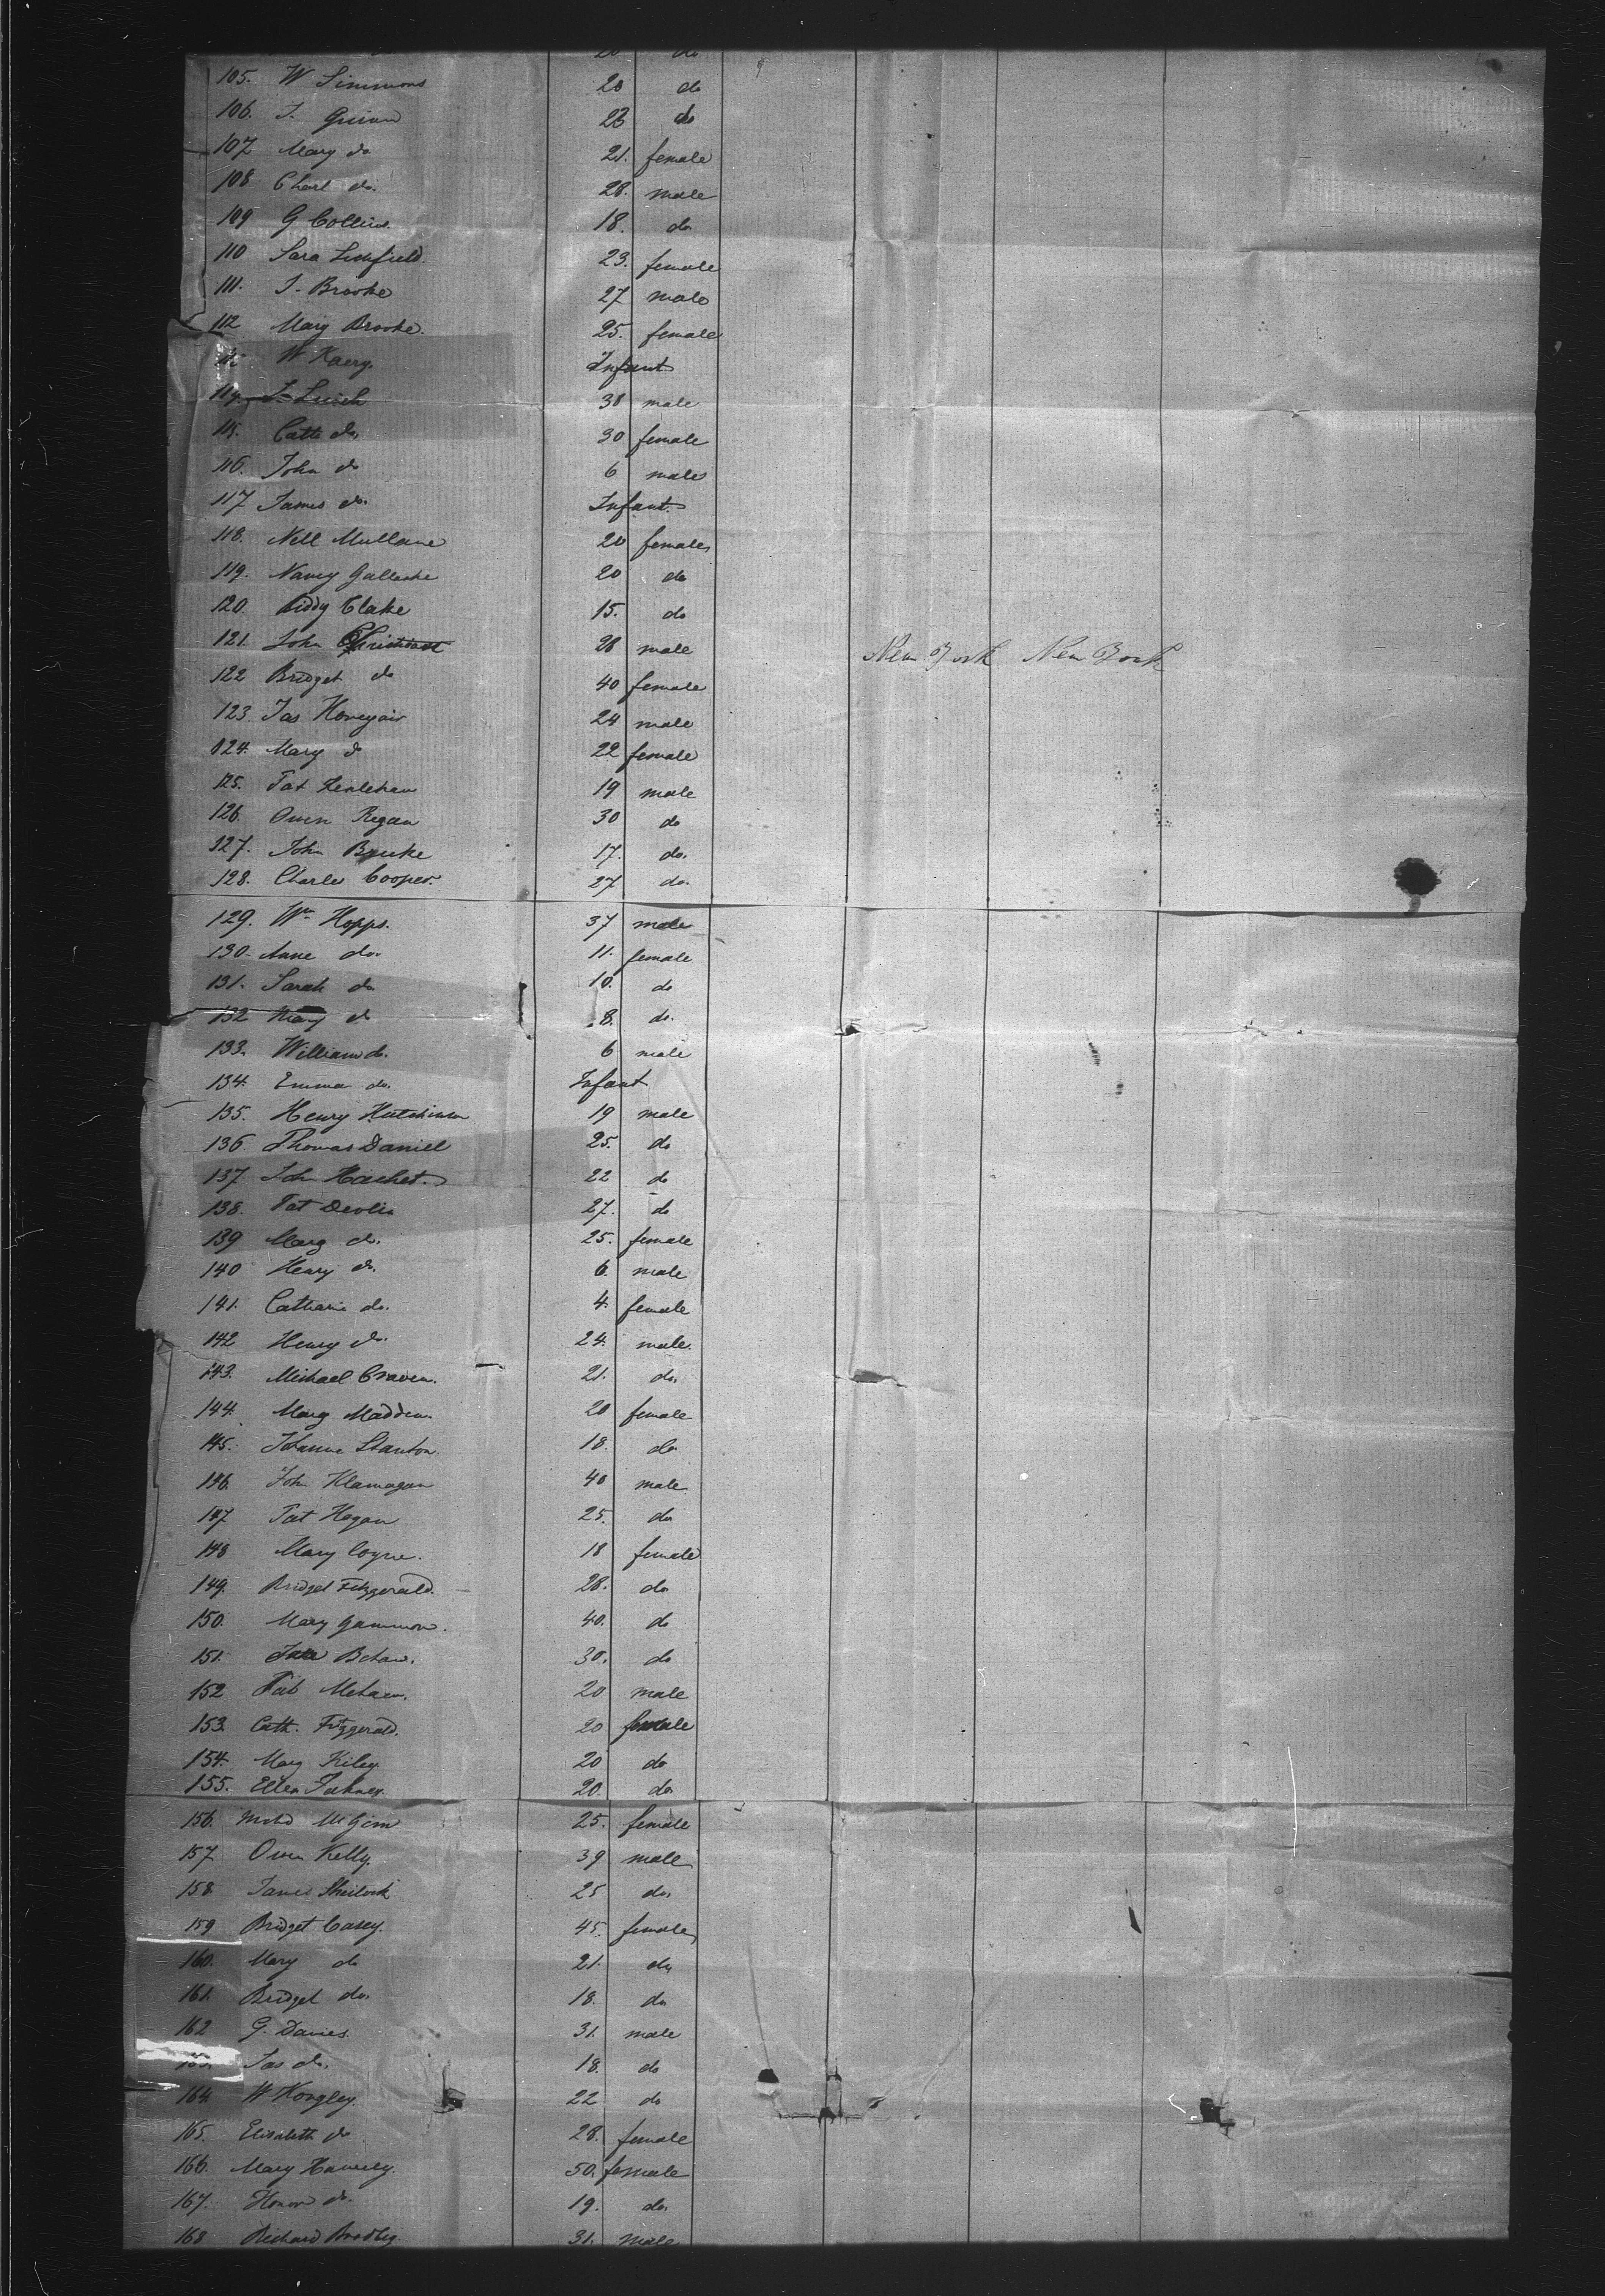 20 do
105. W Simmons 20 do
106. J. 23 do
107 Mary do 21. female
108 Charl do. 28. male
109 G Collins. 18. do
110 Sara Linfield. 23. female
111. J. Brooke 27 male
112 Mary Brooke. 25. female
W Infant
114. 38 male
115. Cath do. 30 female
116. John do 6 male
117 James do. Infant.
118. Nell Mullane 20 female
119. Nancy 20 do
120. Biddy Clake 15. do
121. John 28 male New York New York
122 Bridget do 40 female
123. Jas 24 male
124. Mary do 22 female
125. Pat 19 male
126. Owen Regan 30 do
127. John Bourke 17. do.
128. Charles Cooper. 27 do.
129. Wm Hopps. 37 male
130. Anne do. 11. female
131. Sarah do 10. do
132 Mary do 8. do.
133. William do. 6 male
134. Emma do. Infant
135. Henry Hutchinson 19 male
136 Thomas Daniel 25. do
137 John 22 do
138. Pat Devlin 27. do
139 Mary do. 25. female
140 Henry do. 6. male
141. Catharin do. 4. female
142 Henry do. 24. male
143. Michael Craven. 21. do.
144. Mary Madden. 20 female
145. Johanna Stanton. 18. do
146. John 40 male
147 Pat Hogan 25. do
148 Mary Coyne. 18 female
149. Bridget Fitzgerald. 28. do
150. Mary Gammon. 40. do
151. 30. do
152 Pat 20 male
153. Cath. Fitzgerald. 20 female
154. Mary Kiley. 20 do
155. Ellen 20. do.
156. 25. female
157. Owen Kelly. 39 male
158. James 25 do.
159 Bridget Casey. 45. female
160. Mary do 21. do
161. Bridget do. 18. do
162 G. Davies. 31. male
163. Jas do. 18. do
164 W 22 do
165. Elisabeth do 28. female
166. Mary 50. female
167. Honor do. 19. do.
168 Richard 31. male